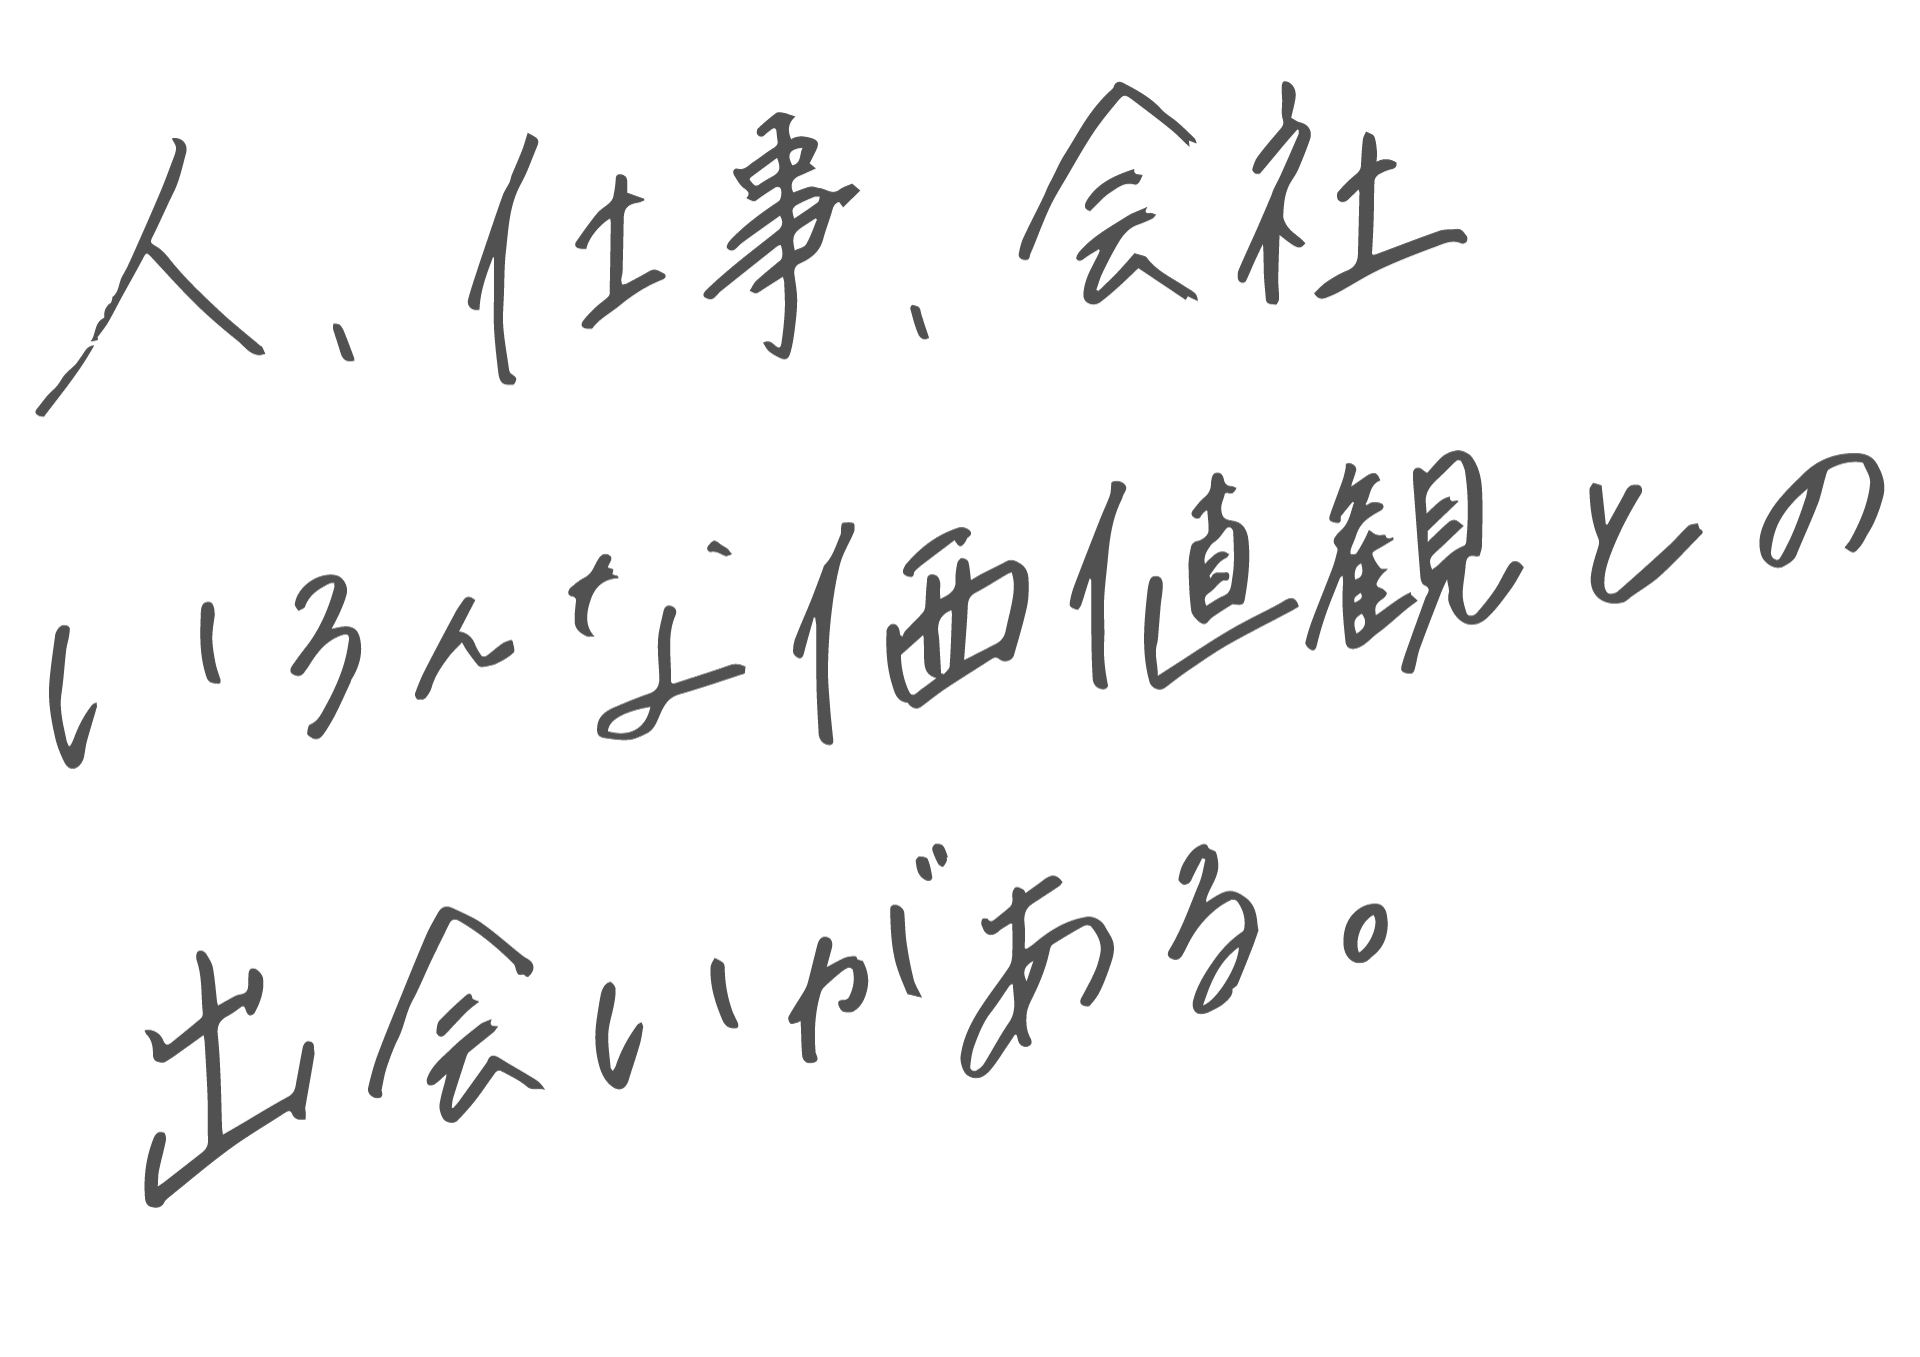 人、仕事、会社
いろんな価値観との
出会いがある。